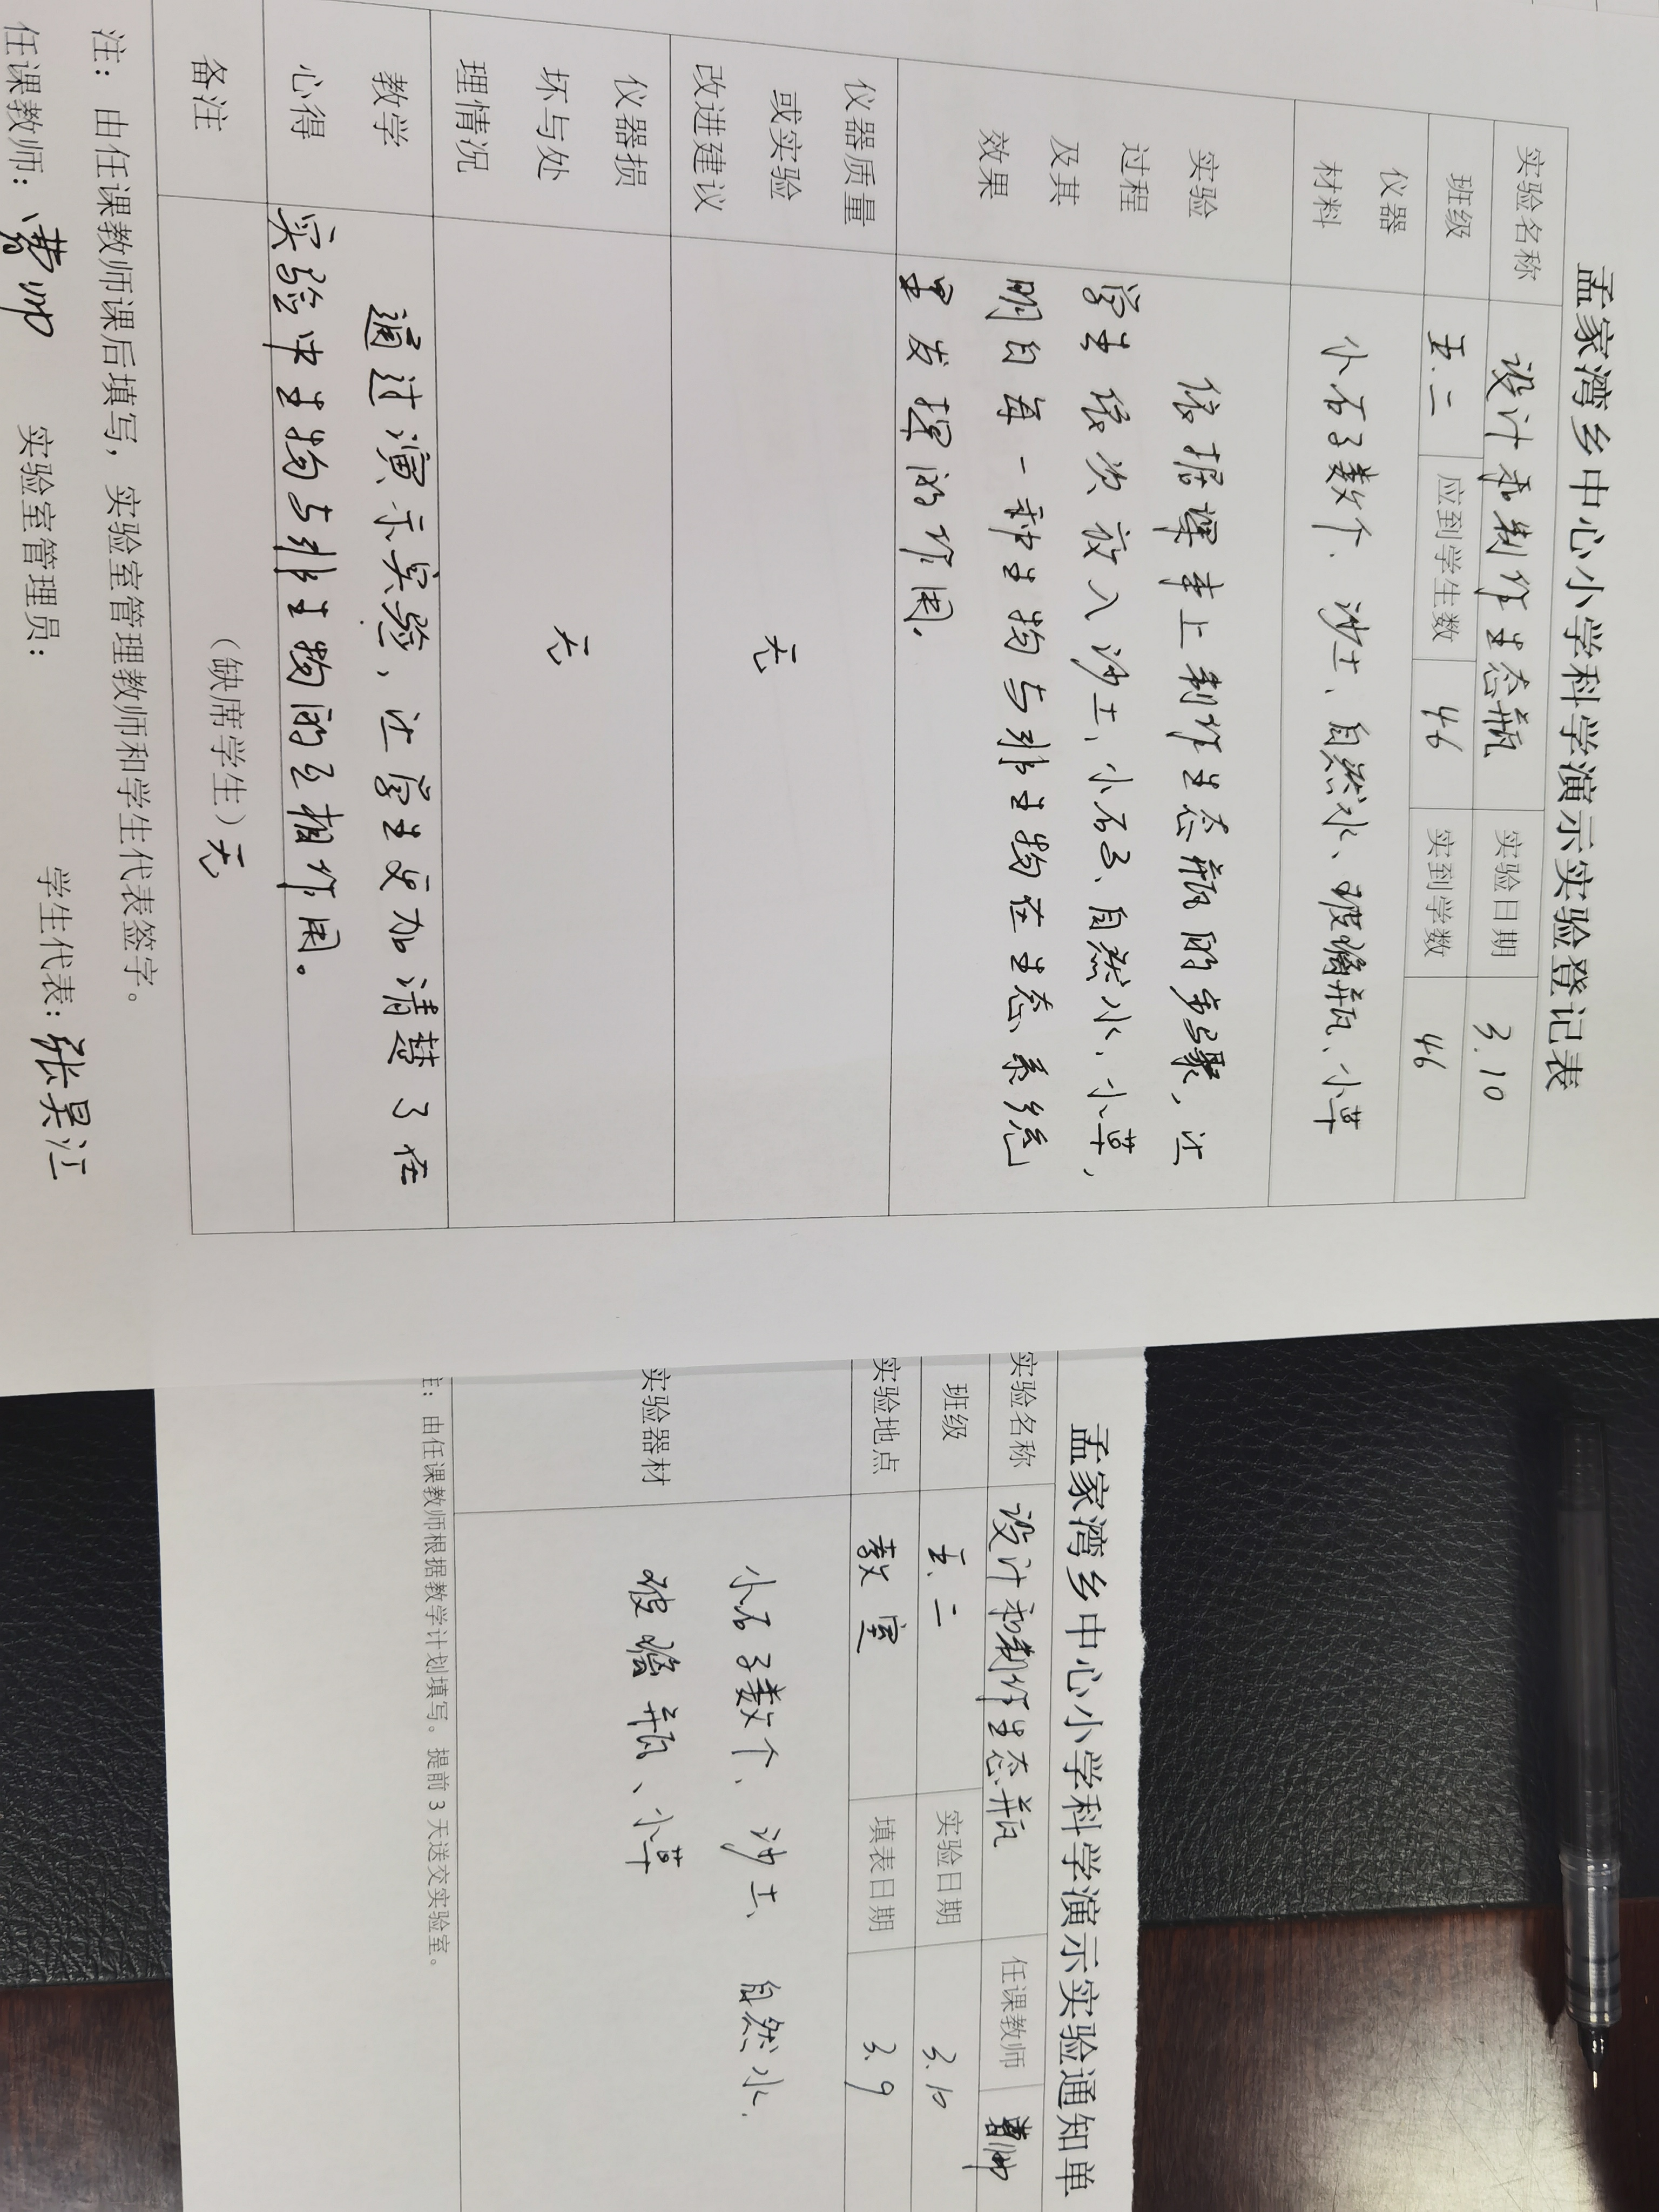 孟家湾乡中心小学科学演示实验登记表
实验名称 设计和制作生态瓶 实验日期 3.10
班级 五.二 应到学生数 46 实到学数 46
仪器
材料
小石子数个、沙土、自然水、玻璃瓶、小草
实验
过程
及其
效果
依据课本上制作生态瓶的步骤,让
学生依次放入沙土、小石子、自然水、小草,
明白每一种生物与非生物在生态系统
里发挥的作用.
仪器质量
或实验
改进建议
无
仪器损
坏与处
理情况
无
教学
心得
通过演示实验,让学生更加清楚了在
实验中生物与非生物的互相作用。
备注 (缺席学生)无
注:由任课教师课后填写,实验室管理教师和学生代表签字。
任课教师: 实验室管理员: 学生代表:张昊江
孟家湾乡中心小学科学演示实验通知单
实验名称 设计和制作生态瓶 任课教师
班级 五.二 实验日期 3.10
实验地点 教室 填表日期 3.9
实验器材
小石子数个、沙土、自然水.
玻璃瓶、小草
注:由任课教师根据教学计划填写。提前3天送交实验室。